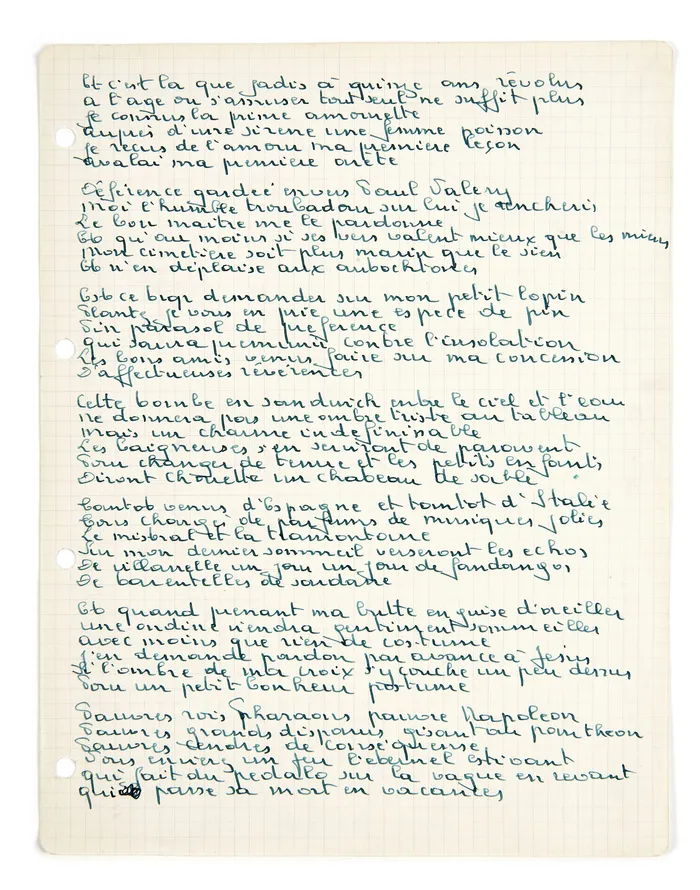 Et c'est la que jadis à quinze ans révolus
a l'age ou s'amuser tout seul ne suffit plus
je connus la prime amourette
auprès d'une sirene une femme poisson
je recus de l'amour ma première leçon
avalai ma premiere arête
Déférence gardeé envers Paul Valery
moi l'humble troubadour sur lui je rencheris
Le bon maitre me le pardonne
Et qu'au moins si ses vers valent mieux que les miens
mon cimetière soit plus marin que le sien
Et n'en déplaise aux autochtones
Est ce trop demander sur mon petit lopin
Plantez je vous en prie une espece de pin
Pin parasol de preference
qui saura premunir contre l'insolation
Les bons amis venus faire sur ma concession
D'affectueuses révérences
Cette tombe en sandwich entre le ciel et l'eau
ne donnera pas une ombre triste au tableau
mais un charme indefinissable
Les baigneuses s'en serviront de paravent
Pour changer de tenue et les petits enfants
Diront chouette un chateau de sable
Tantot venus d'Espagne et tantot d'Italie
Tous chargés de parfums de musiques jolies
Le mistral et la tramontane
Sur mon dernier sommeil verseront les echos
De villanelle un jour un jour de fandangos
De tarentelles de sardane
Et quand prenant ma butte en guise d'oreiller
une ondine viendra gentiment sommeiller
avec moins que rien de costume
j'en demande pardon par avance à Jesus
Si l'ombre de ma croix s'y couche un peu dessus
Pour un petit bonheur postume
Pauvres rois Pharaons pauvre Napoleon
Pauvres grands disparus gisant au pantheon
Pauvres cendres de consequense
Vous envierez un peu l'eternel estivant
qui fait du pedalo sur la vague en revant
qui passe sa mort en vacances